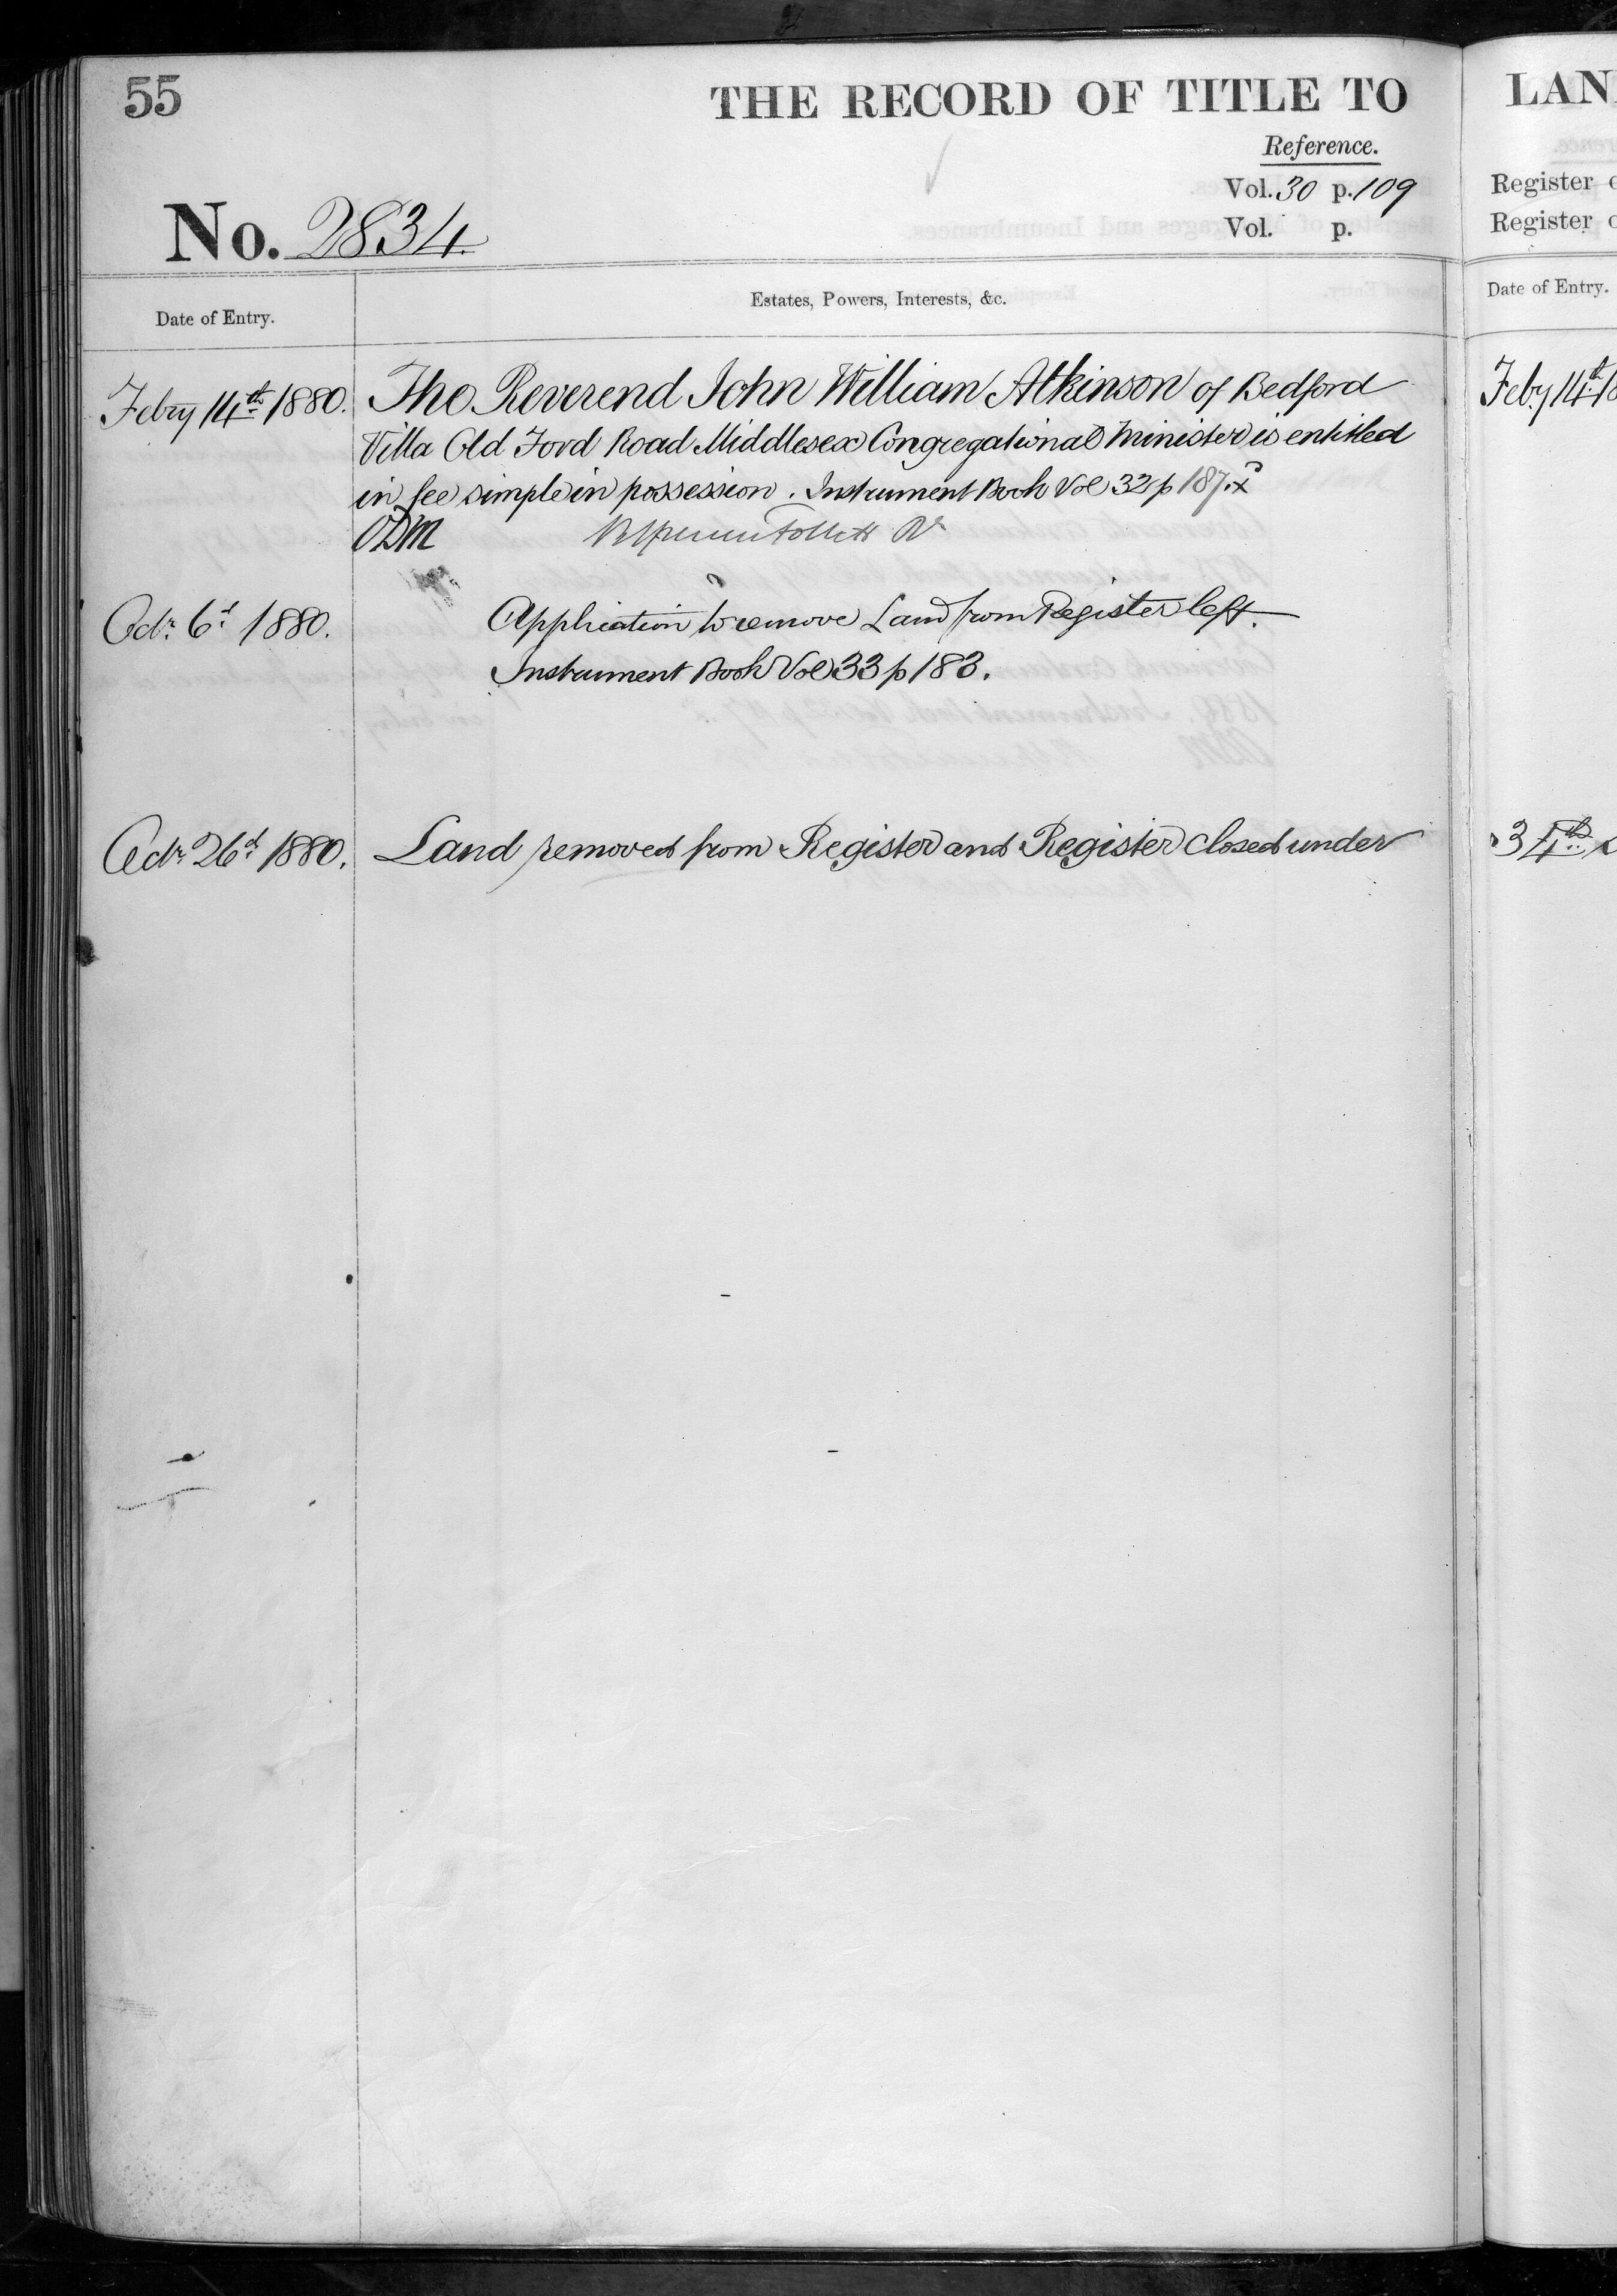 55
THE RECORD OF TITLE TO
Reference.
Vol. 30 p. 109
Vol. p.
No. 2834
Date of Entry.
Estates, Powers, Interests, &c.
Febry 14th 1880.
The Reverend John William Atkinson of Bedford
Villa Old Ford Road Middlesex Congregational Minister is entitled
in fee simple in possession. Instrument Book Vol 32 p 187.
ODM
Octr. 6th 1880.
Application to remove Land from Register left.
Instrument Book Vol 33 p 183.
Octr 26th 1880.
Land removed from Register and Register closed under
LAN
Register
Register
Date of Entry.
Feby 14th 18
34th